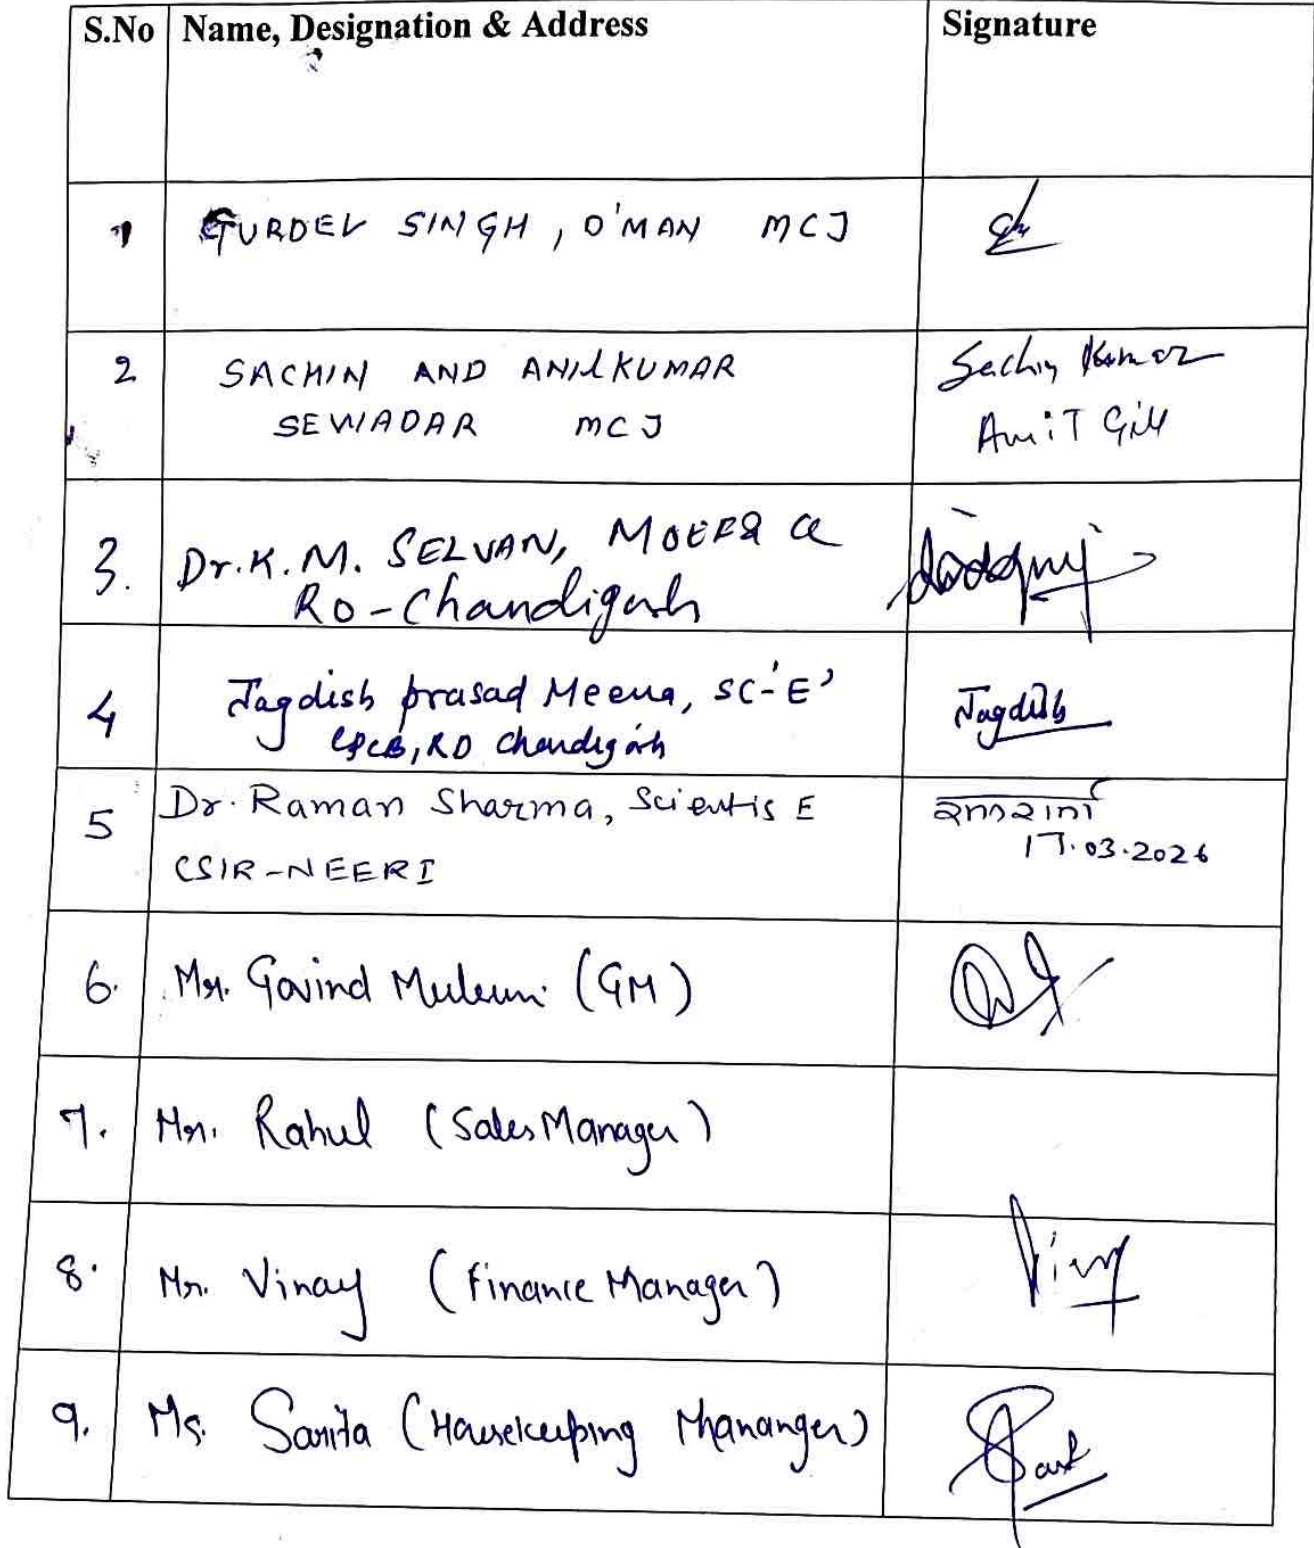 S.No Name, Designation & Address Signature
1 GURDEV SINGH, O'MAN MCJ
2 SACHIN AND ANILKUMAR Sachin Kumar
SEWADAR MCJ Amit Gill
3. Dr. K. M. SELVAN, MOEF&CC
RO-Chandigarh
4 Jagdish prasad Meena, SC-'E' Jagdish
CPCB, RO Chandigarh
5 Dr. Raman Sharma, Scientis E
CSIR-NEERI 17.03.2026
6. Mr. Govind (GM)
7. Mr. Rahul (Sales Manager)
8. Mr. Vinay (Finance Manager) Vinay
9. Ms. Sarita (Housekeeping Mananger)